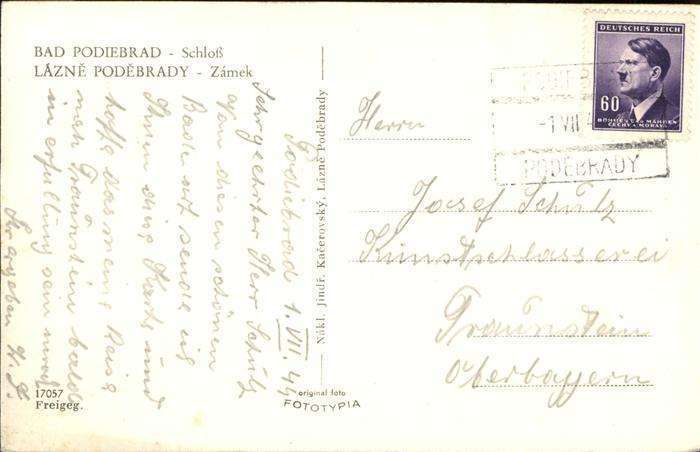 BAD PODIEBRAD - Schloß
LÁZNĚ PODĚBRADY - Zámek
Podiebrad 1. VII. 44
Sehr geehrter Herr Schütz
Von diesen schönen
Bade ort sende ich
Ihnen diese Karte und
hoffe das meine Reise
nach Traunstein bald
in erfüllung sein wird
17057
Freigeg.
Nákl. Jindř. Kačerovský, Lázně Poděbrady
original foto
FOTOTYPIA
DEUTSCHES REICH
60
BÖHMEN U. MÄHREN
ČECHY A MORAVA
-1 VII
PODĚBRADY
Herrn
Josef Schütz
Kunstschlosserei
Traunstein
Oberbayern